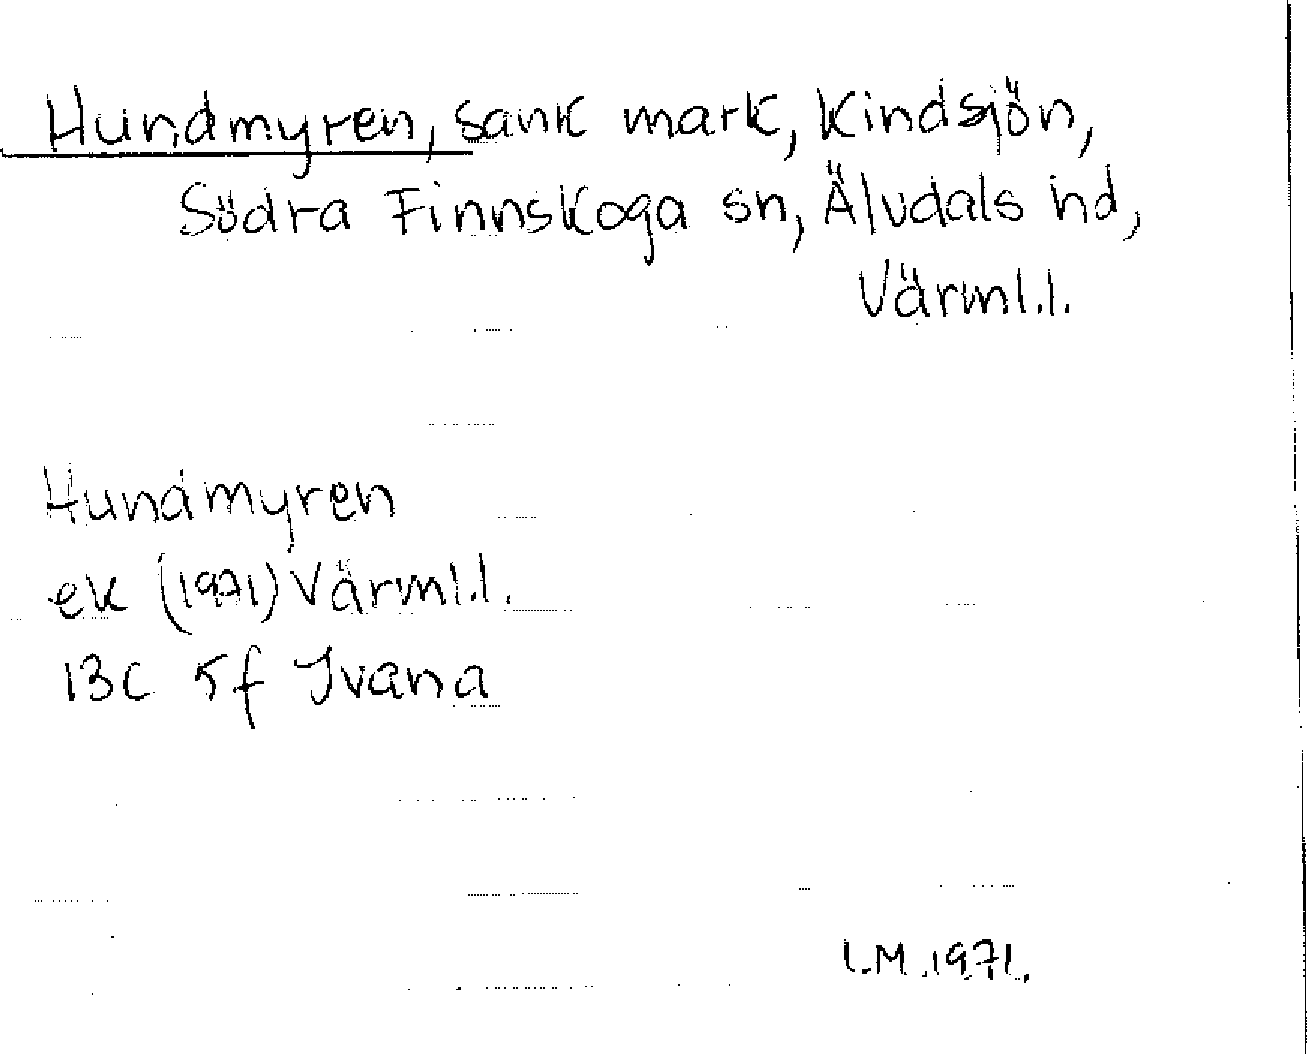 Hundmyren, sank mark, Kindsjön,
Södra Finnskoga sn, Älvdals hd,
Värml.l.
Hundmyren
ek (1971) Värml.l.
13C 5f Ivana
L.M. 1971.